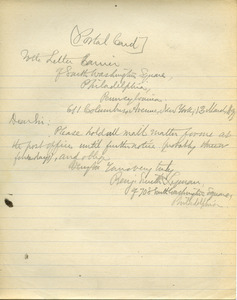 [Postal Card]
To the Letter Carrier
of South Washington Square,
Philadelphia,
Pennsylvania
611 Columbus Avenue, New York, 13 March
Dear Sir:
Please hold all mail matter for me at
the post office until further notice (probably
), and oblige
Yours very truly,
Benj. Smith Lyman,
of 708 South Washington Square,
Philadelphia